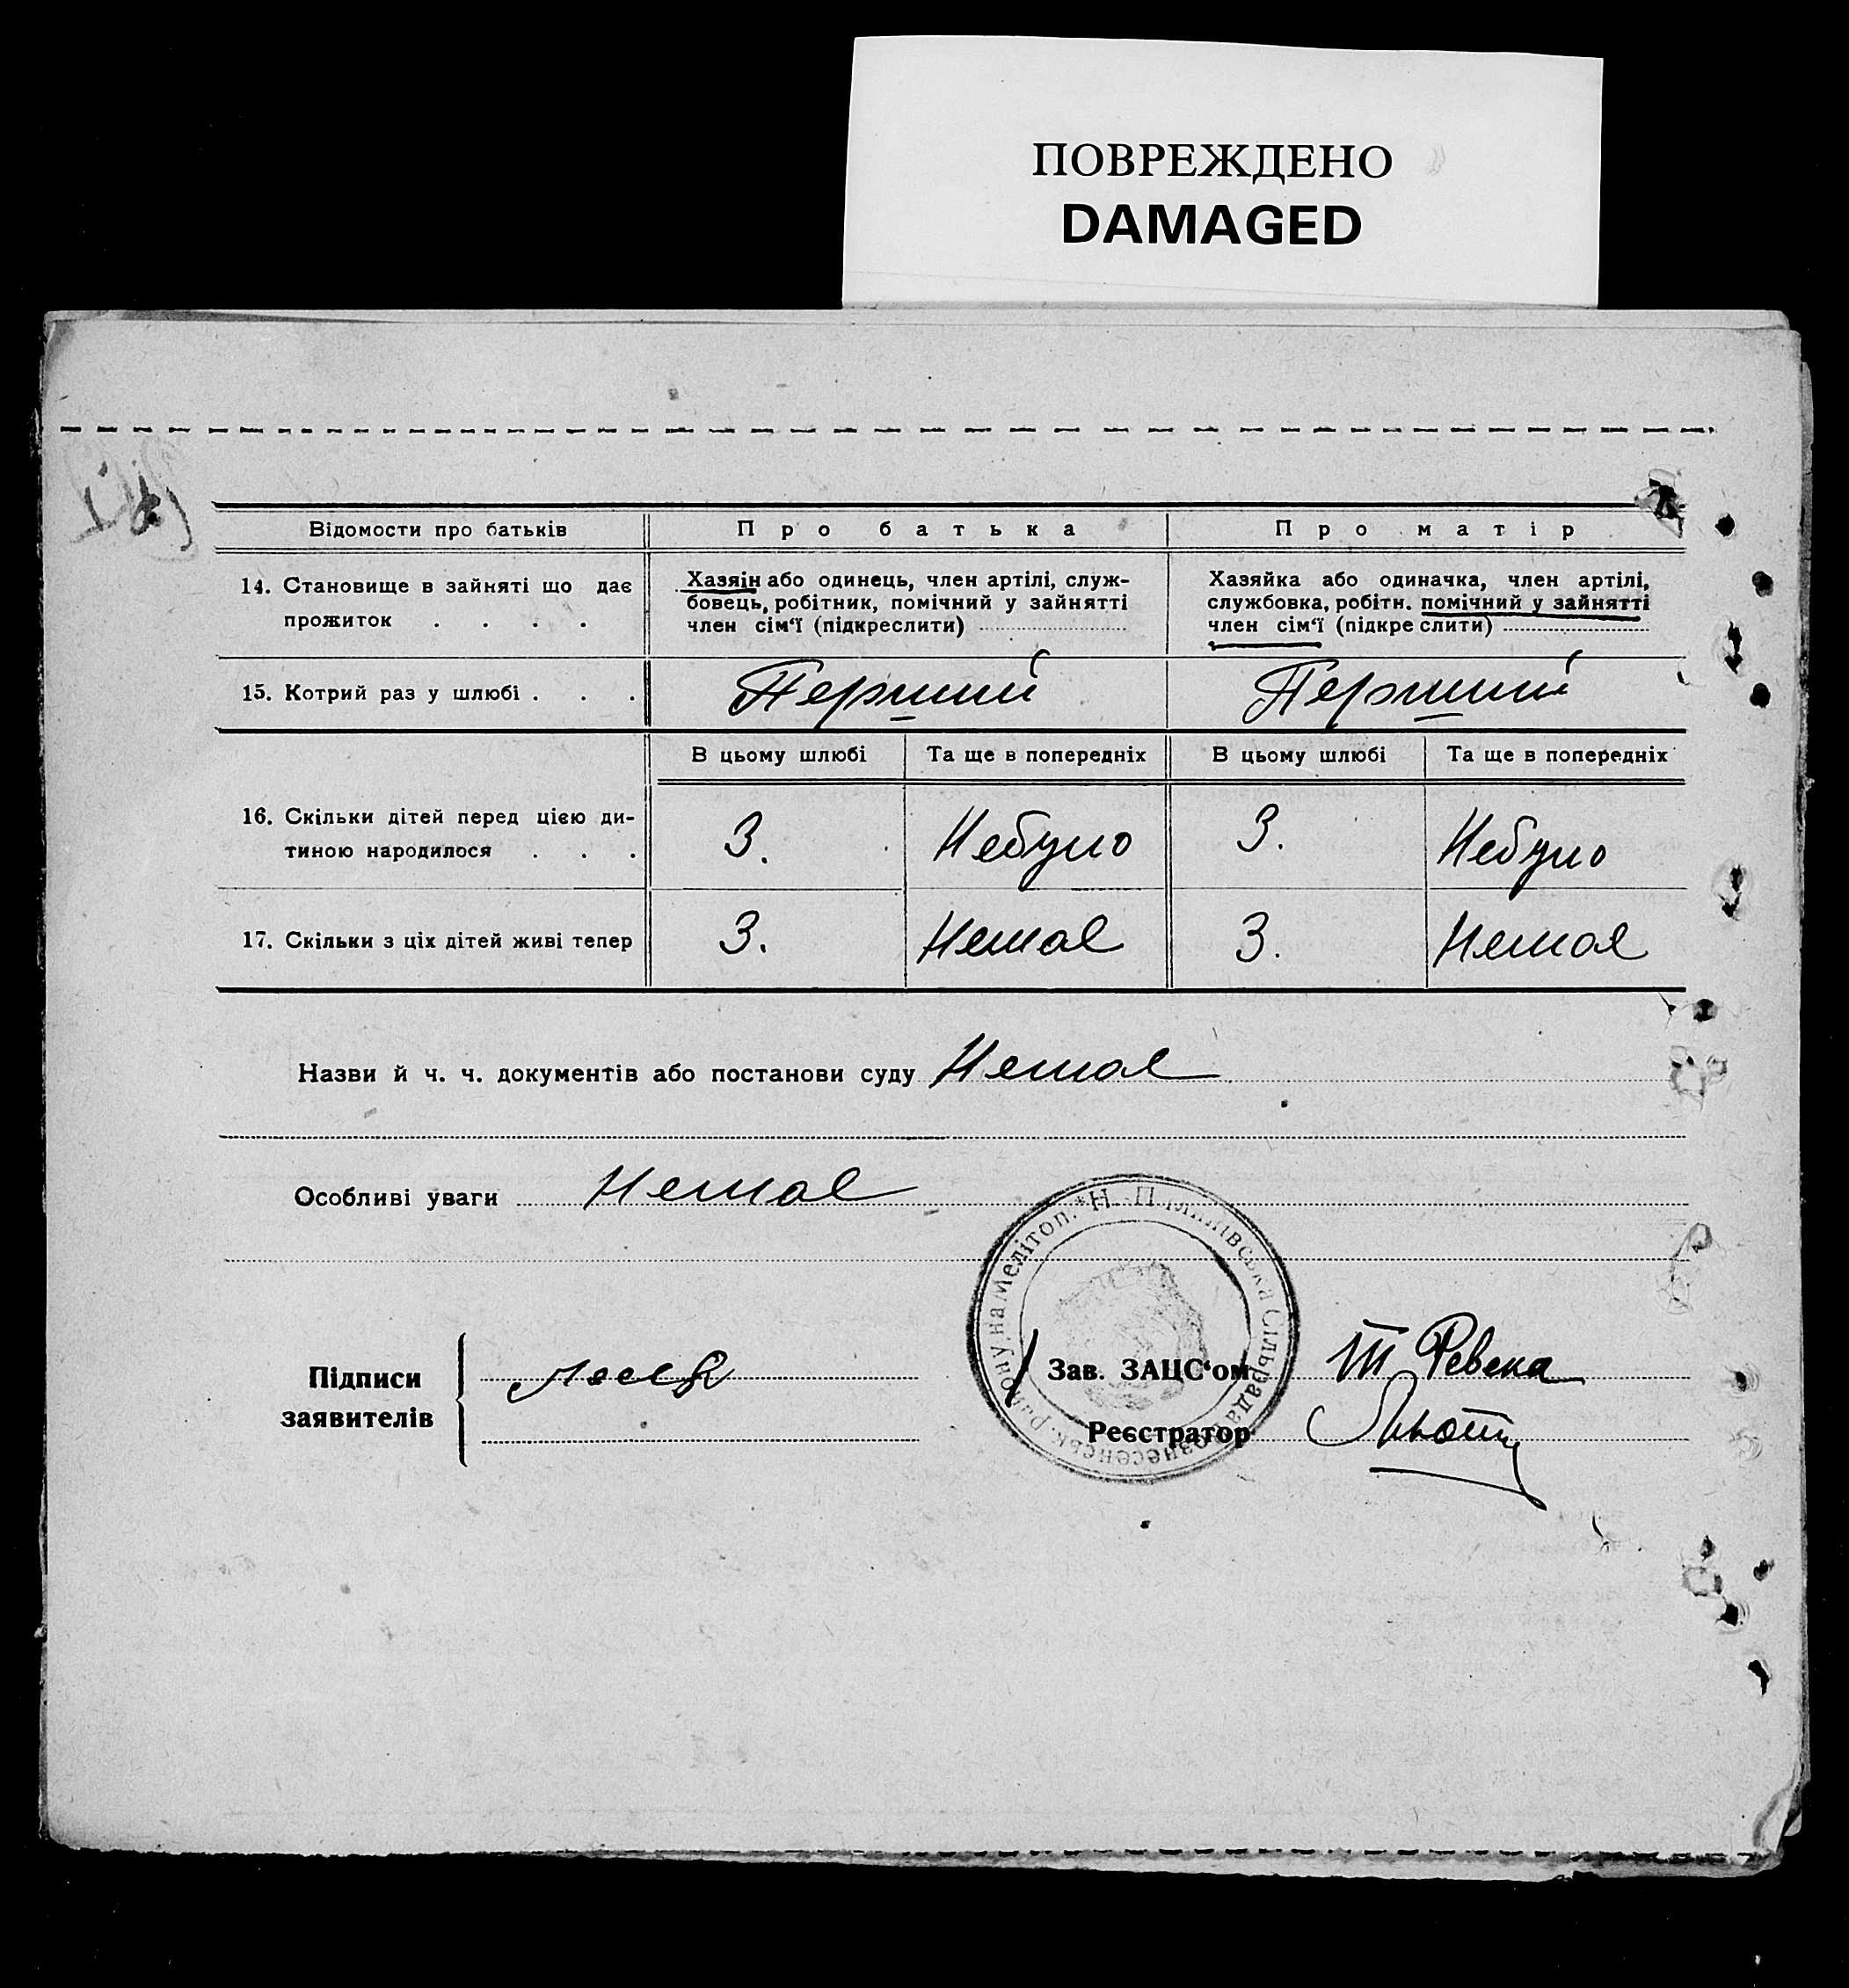 ПОВРЕЖДЕНО
DAMAGED
Відомости про батьків
Про батька
Про матір
14. Становище в зайняті що дає
прожиток . . . .
Хазяін або одинець, член артілі, служ-
бовець, робітник, помічний у зайнятті
член сім‘ї (підкреслити)
Хазяйка або одиначка, член артілі,
службовка, робітн. помічний у зайнятті
член сім‘ї (підкреслити)
15. Котрий раз у шлюбі . . .
Перший
Перший
В цьому шлюбі
Та ще в попередніх
В цьому шлюбі
Та ще в попередніх
16. Скільки дітей перед цією ди-
тиною народилося . . .
3.
Небуло
3.
Небуло
17. Скільки з ціх дітей живі тепер
3.
Немає
3.
Немає
Назви й ч. ч. документів або постанови суду Немає
Особливі уваги Немає
Підписи
заявителів
Зав. ЗАЦС‘ом
Реєстратор
Сільрада Вознесенськ. району на Мелітоп. * Н.